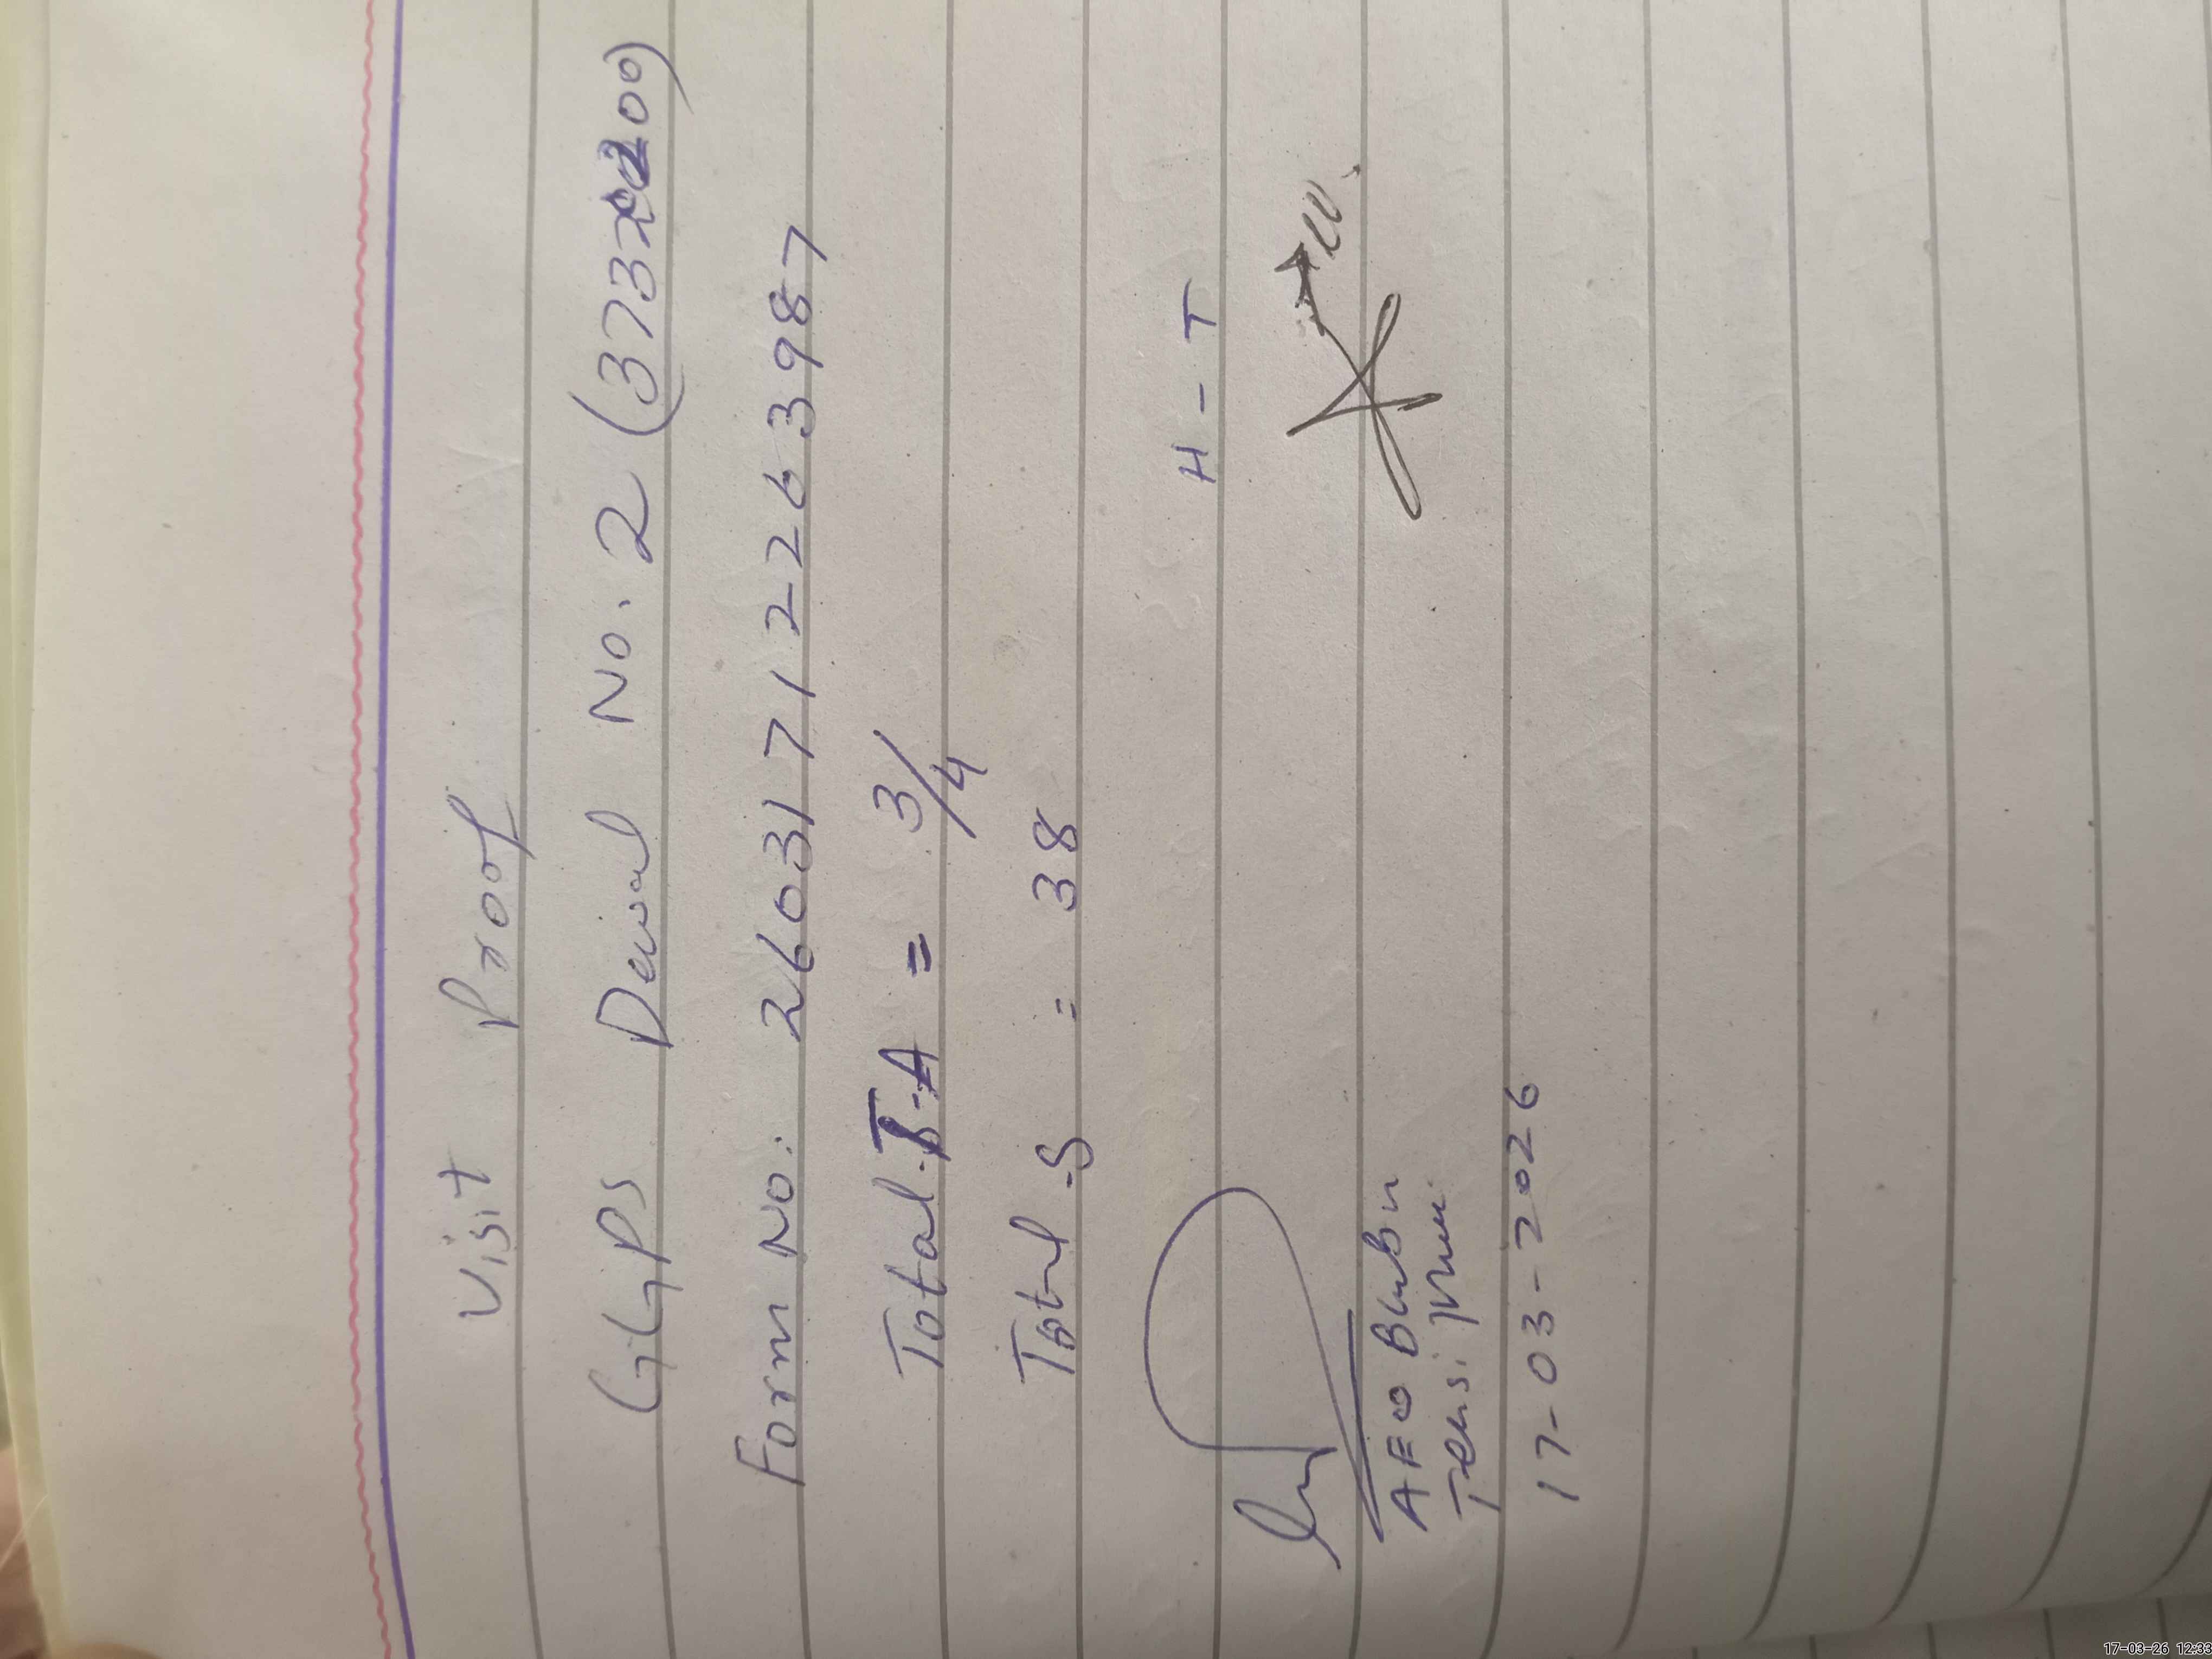 Visit Proof
GGPS Dewal No. 2 (37320200)
Form No: 2603171226 3987
Total T-A = 3/4
Total -S = 38
H - T
AEO
17-03-2026
17-03-26 12:33